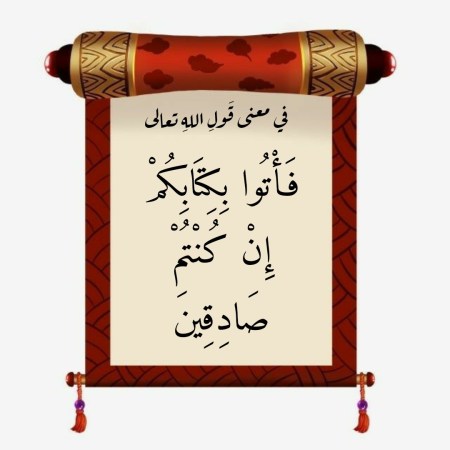 في معنى قَولِ اللهِ تعالى
فَأْتُوا بِكِتَابِكُمْ
إِنْ كُنْتُمْ
صَادِقِينَ